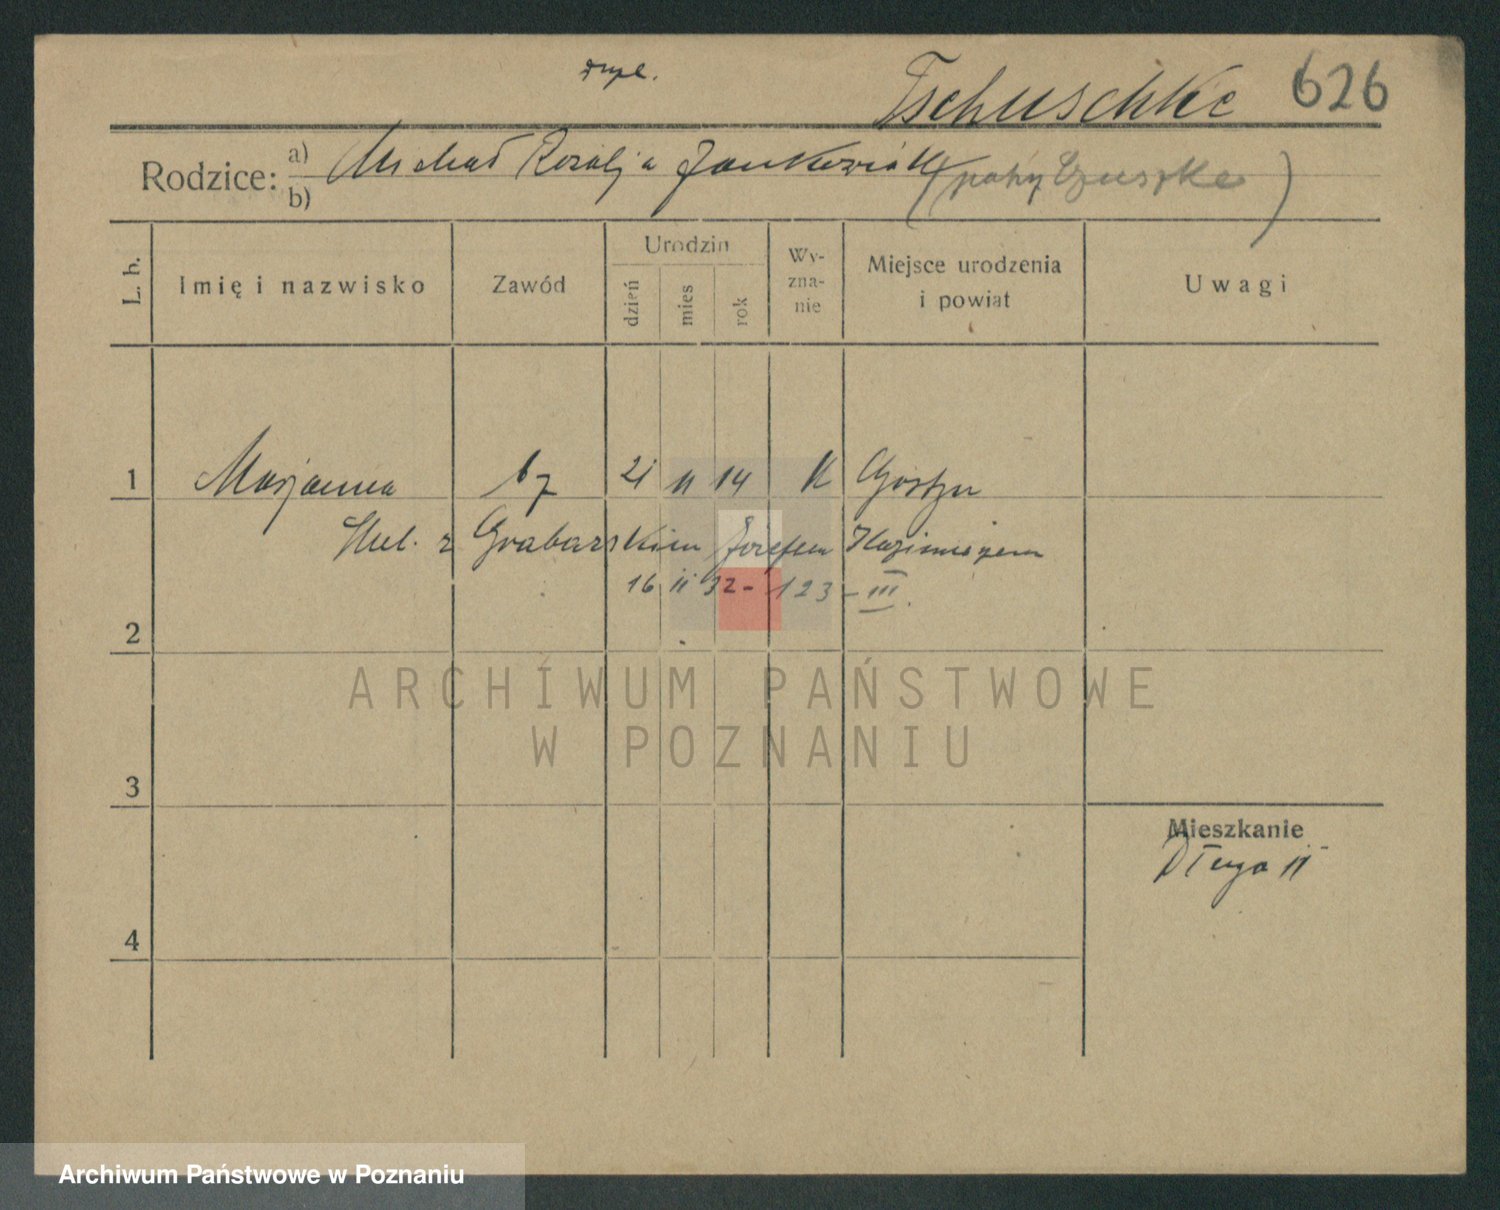 dupl.
Tschuschke 626
Rodzice: a) Michał Rozalja Jankowiak (patrz Czuszke)
b)
L. b. Imię i nazwisko Zawód Urodzin Wy-zna-nie Miejsce urodzenia i powiat Uwagi
dzień mies rok
1 Marjanna bz 21 11 14 K Gostyn
Slub. z Grabarskim Józefem Kazimierzem
16 11 32 - 123 - III.
2
3
Mieszkanie
Długa 11
4
ARCHIWUM PAŃSTWOWE
W POZNANIU
Archiwum Państwowe w Poznaniu